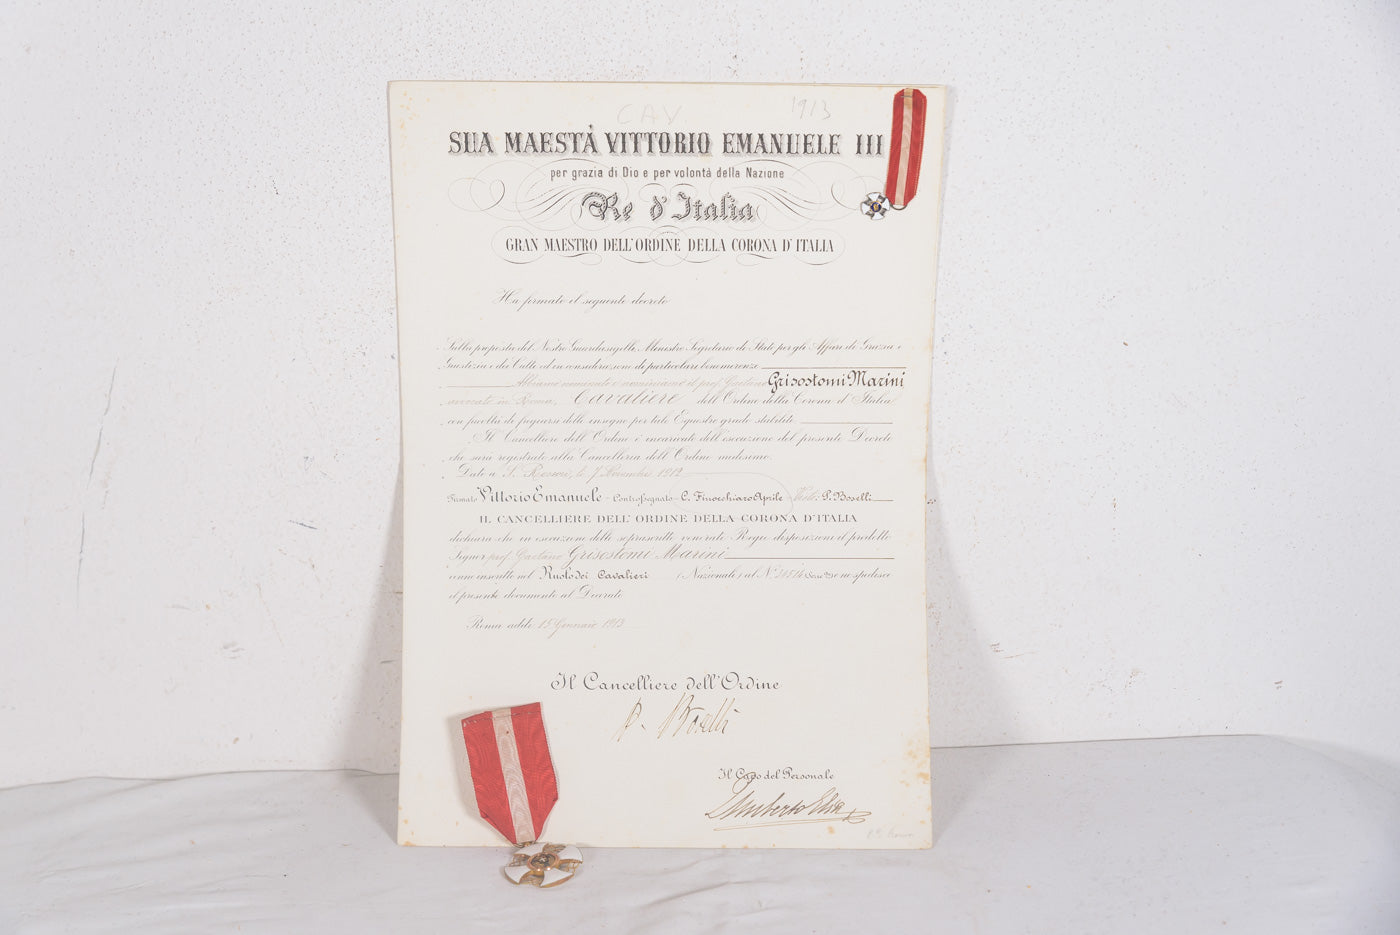 CAV. 1913
SUA MAESTÀ VITTORIO EMANUELE III
per grazia di Dio e per volontà della Nazione
Re d'Italia
GRAN MAESTRO DELL'ORDINE DELLA CORONA D'ITALIA
Ha firmato il seguente decreto
Sulla proposta del Nostro Guardasigilli, Ministro Segretario di Stato per gli Affari di Grazia e
Giustizia e dei Culti ed in considerazione di particolari benemerenze
Abbiamo nominato e nominiamo il prof. Gaetano Grisostomi Marini
avvocato in Roma, Cavaliere dell'Ordine della Corona d'Italia
con facoltà di fregiarsi delle insegne per tale Equestre grado stabilite
Il Cancelliere dell'Ordine è incaricato dell'esecuzione del presente Decreto
che sarà registrato alla Cancelleria dell'Ordine medesimo.
Dato a S. Rossore, li 7 Novembre 1912
Firmato Vittorio Emanuele - Controssegnato - C. Finocchiaro Aprile - Visto: P. Boselli
IL CANCELLIERE DELL'ORDINE DELLA CORONA D'ITALIA
dichiara che in esecuzione delle soprascritte venerate Regie disposizioni il predetto
Signor prof. Gaetano Grisostomi Marini
venne inscritto nel Ruolo dei Cavalieri (Nazionali) al N. e ne spedisce
il presente documento al Decorato
Roma addì 15 Gennaio 1913
Il Cancelliere dell'Ordine
P. Boselli
Il Capo del Personale
Umberto